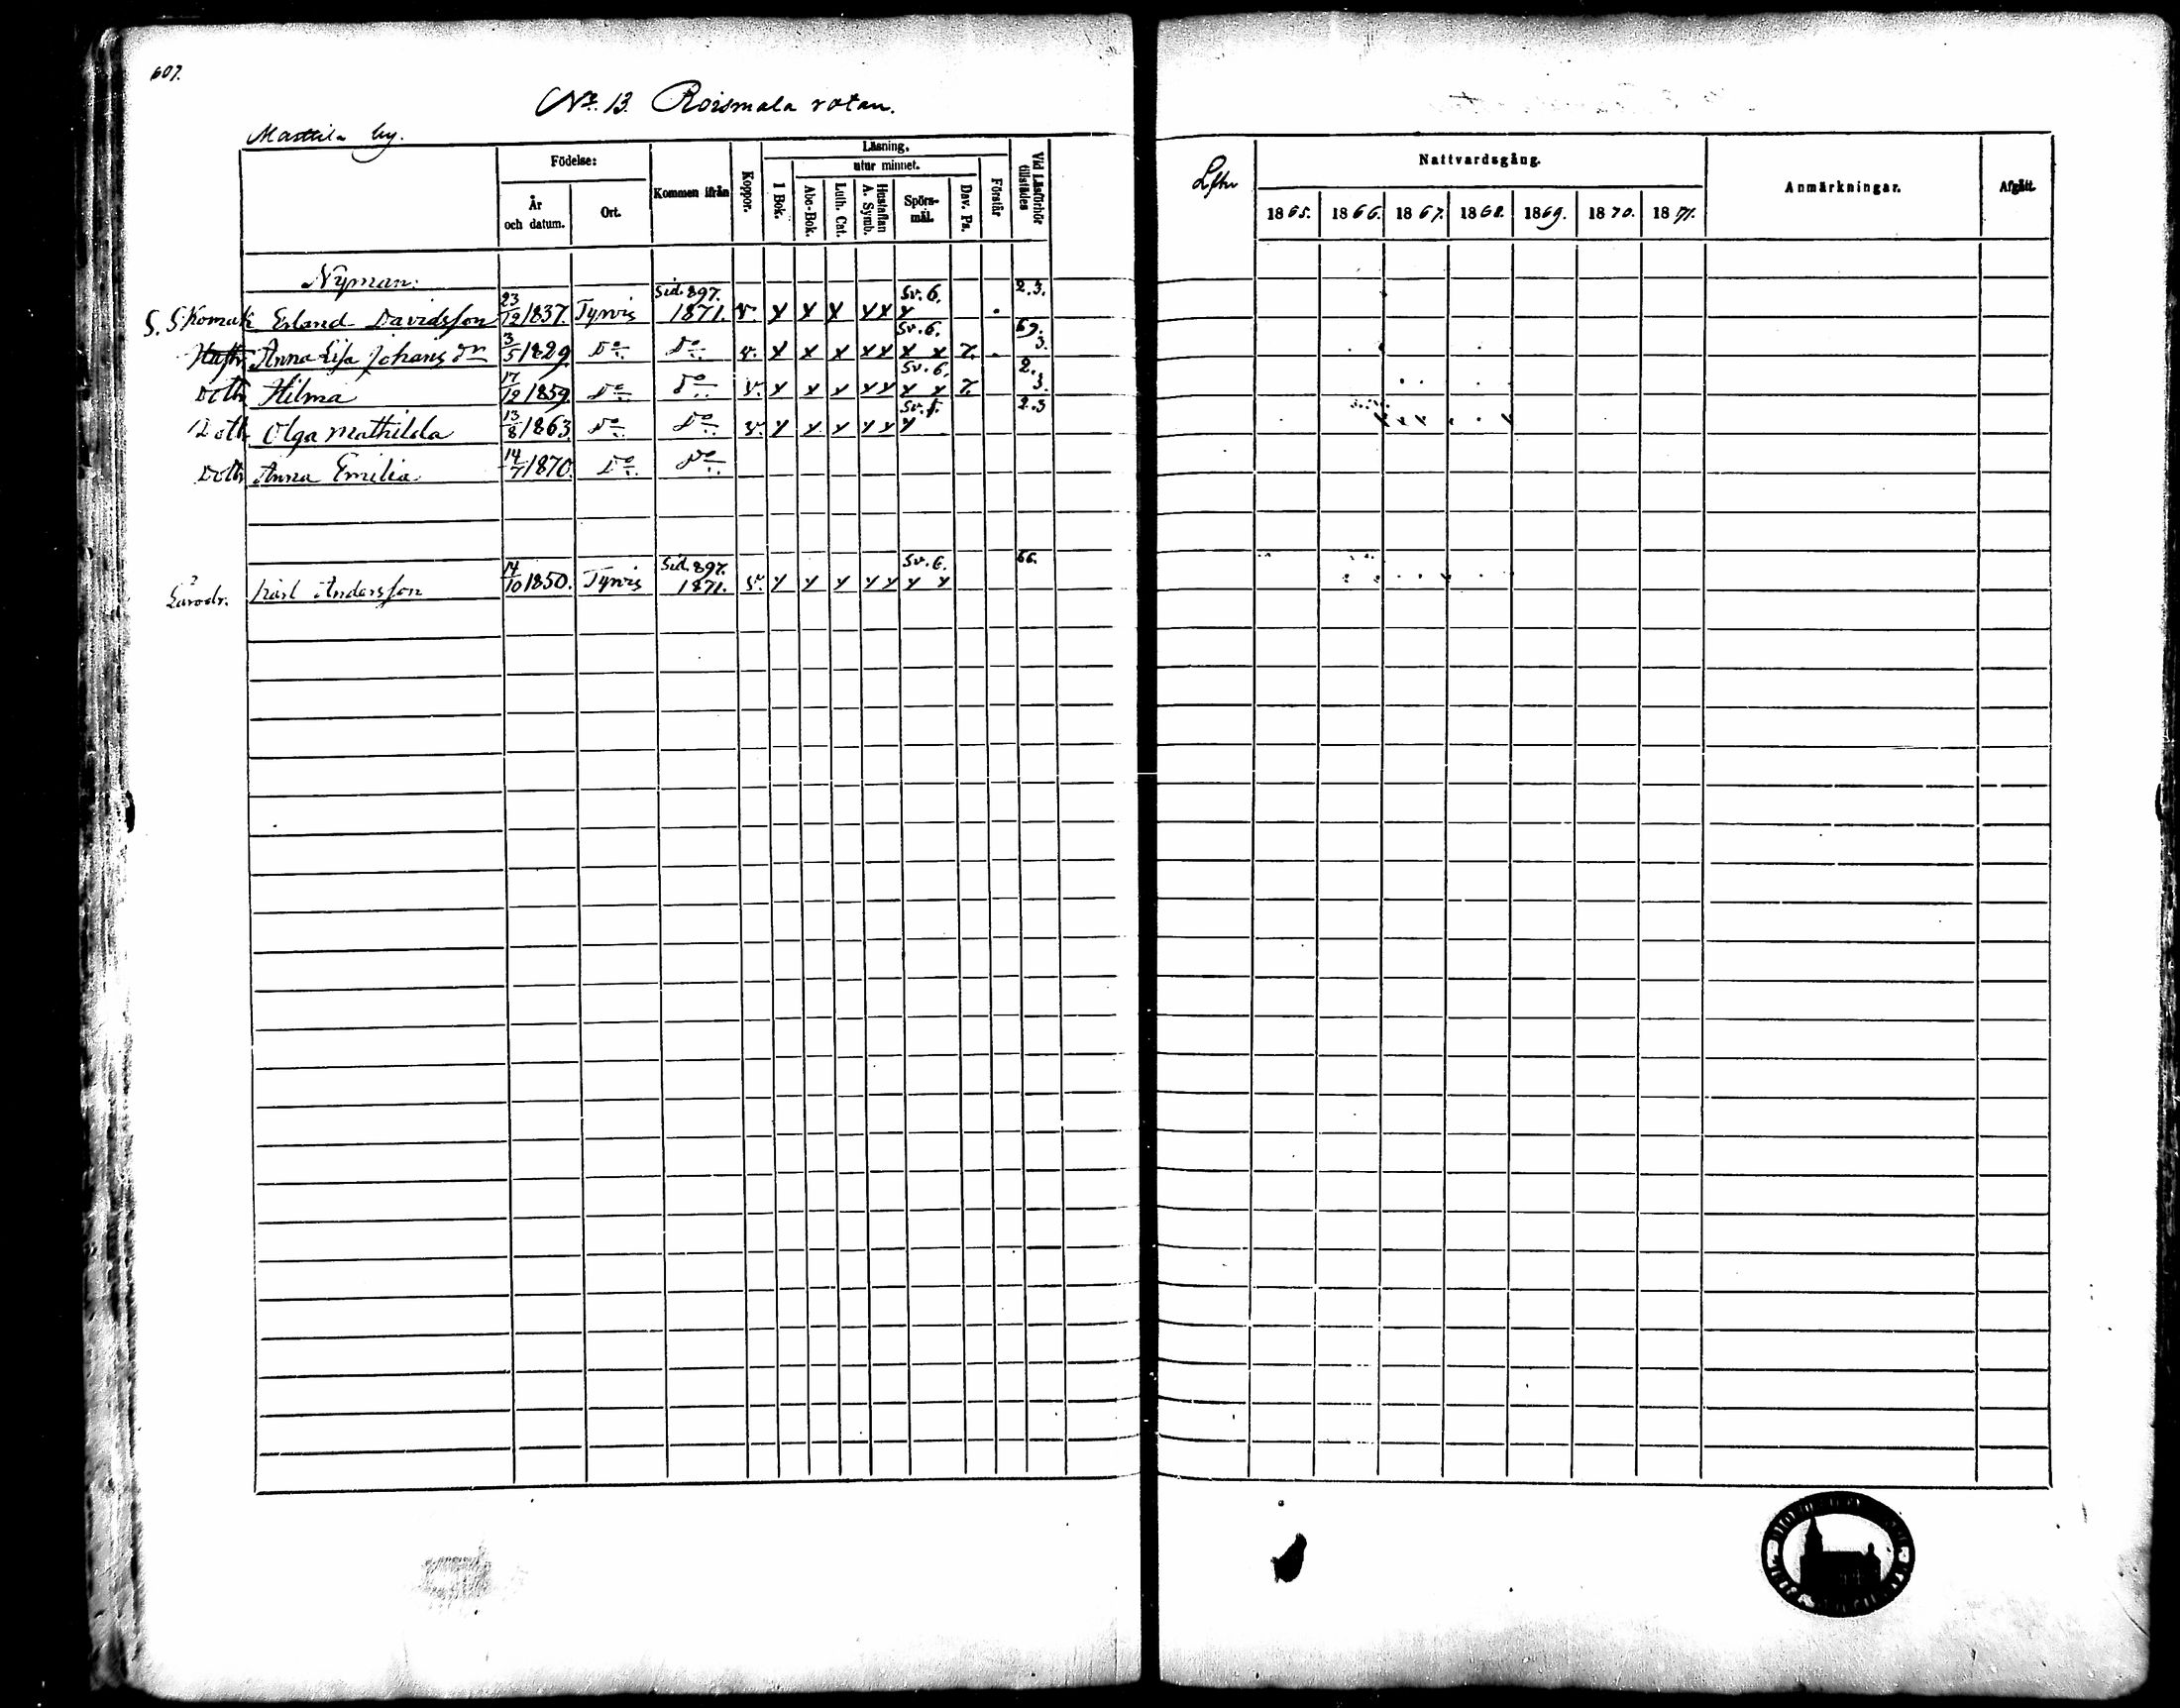 607.
No. 13. Roismala rotan.
Masttila by.
Födelse: Kommen ifrån Koppor. Läsning. Vid Läsförhör tillstädes
År och datum. Ort. 1 Bok. utur minnet. Förstår
Abc-Bok. Luth. Cat. Hustaflan A. Symb. Spörs-mål. Dav. Ps.
Nyman.
Sid. 897. Sv. 6. 2.3.
S. Skomak Erland Davidsson 23/12 1837. Tyrvis 1871. v. x x x x x x
Sv. 6. 69.
Hustr. Anna Lisa Johans dr 3/5 1829 Do Do v. x x x x x x x 7. 3.
Sv. 6. 2.
Dottr Hilma 17/12 1859. Do Do v. x x x x x x x 7. 3.
2.3
Dottr Olga Mathilda 13/8 1863 Do Do v. x x x x x x
Dottr Anna Emilia 14/7 1870. Do Do
Sid. 897. Sv. 6. 66.
Lärodr. Karl Andersson 14/10 1850. Tyrvis 1871. v. x x x x x x x
Nattvardsgång. Anmärkningar. Afgått.
1865. 1866. 1867. 1868. 1869. 1870. 1871.